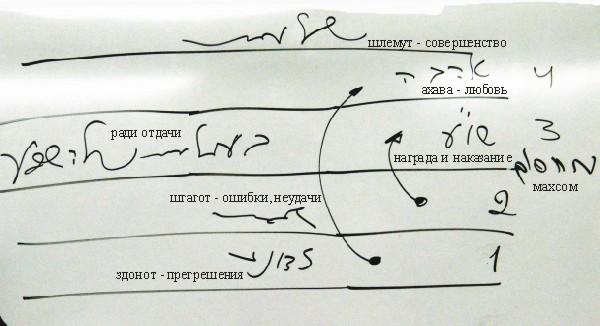 שלמות
шлемут - совершенство
אהבה 4
ахава - любовь
ради отдачи
שו"ע 3
награда и наказание
מחסום
махсом
шгагот - ошибки, неудачи
2
זדונות 1
здонот - прегрешения